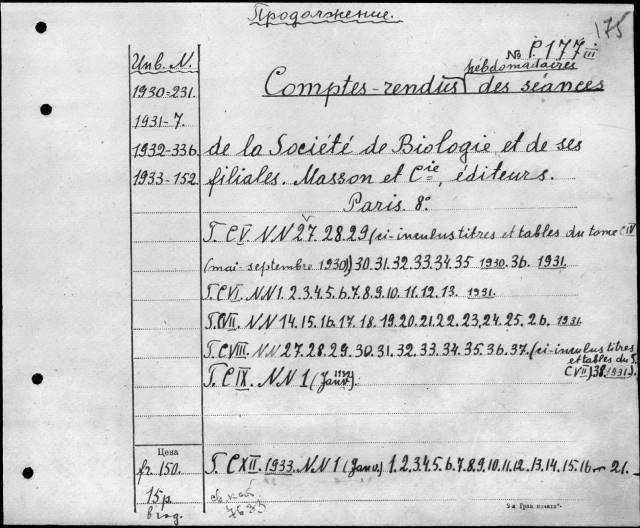 Продолжение.
175
Инв. N.
№ P. 177 III
hebdomadaires
Comptes-rendus des séances
1930-231.
1931-7.
1932-336.
1933-152.
de la Société de Biologie et de ses
filiales. Masson et Cie, éditeurs.
Paris 8º
T. CV. NN 27. 28. 29 (ci-inculus titres et tables du tome CIV
(mai-septembre 1930)) 30. 31. 32. 33. 34. 35 1930. 36. 1931.
T. CVI. NN 1. 2. 3. 4. 5. 6. 7. 8. 9. 10. 11. 12. 13. 1931.
T. CVII. NN 14. 15. 16. 17. 18. 19. 20. 21. 22. 23, 24. 25. 26. 1931.
T. CVIII. NN 27. 28. 29. 30. 31. 32. 33. 34. 35. 36. 37. (ci-inculus titres
et tables du T.
CVII) 38. 1931.).
T. CIX. NN 1 (Janv. 1932).
Цена
fr. 150.
15 р.
T. CXII. 1933. NN 1 (Janv.) 1. 2. 3. 4. 5. 6. 7. 8. 9. 10. 11. 12. 13. 14. 15. 16 — 21.